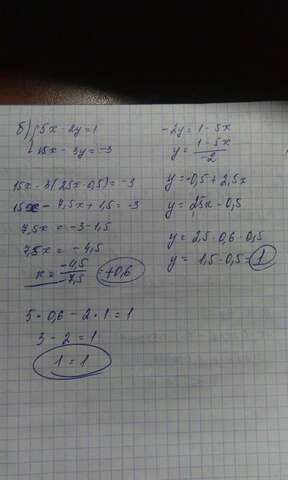 б) { 5x - 2y = 1
15x - 3y = -3
15x - 3(2,5x - 0,5) = -3
15x - 7,5x + 1,5 = -3
7,5x = -3 - 1,5
7,5x = -4,5
x = -4,5 / -7,5 = +0,6
5 · 0,6 - 2 · 1 = 1
3 - 2 = 1
1 = 1
-2y = 1 - 5x
y = 1 - 5x / -2
y = -0,5 + 2,5x
y = 2,5x - 0,5
y = 2,5 · 0,6 - 0,5
y = 1,5 - 0,5 = 1